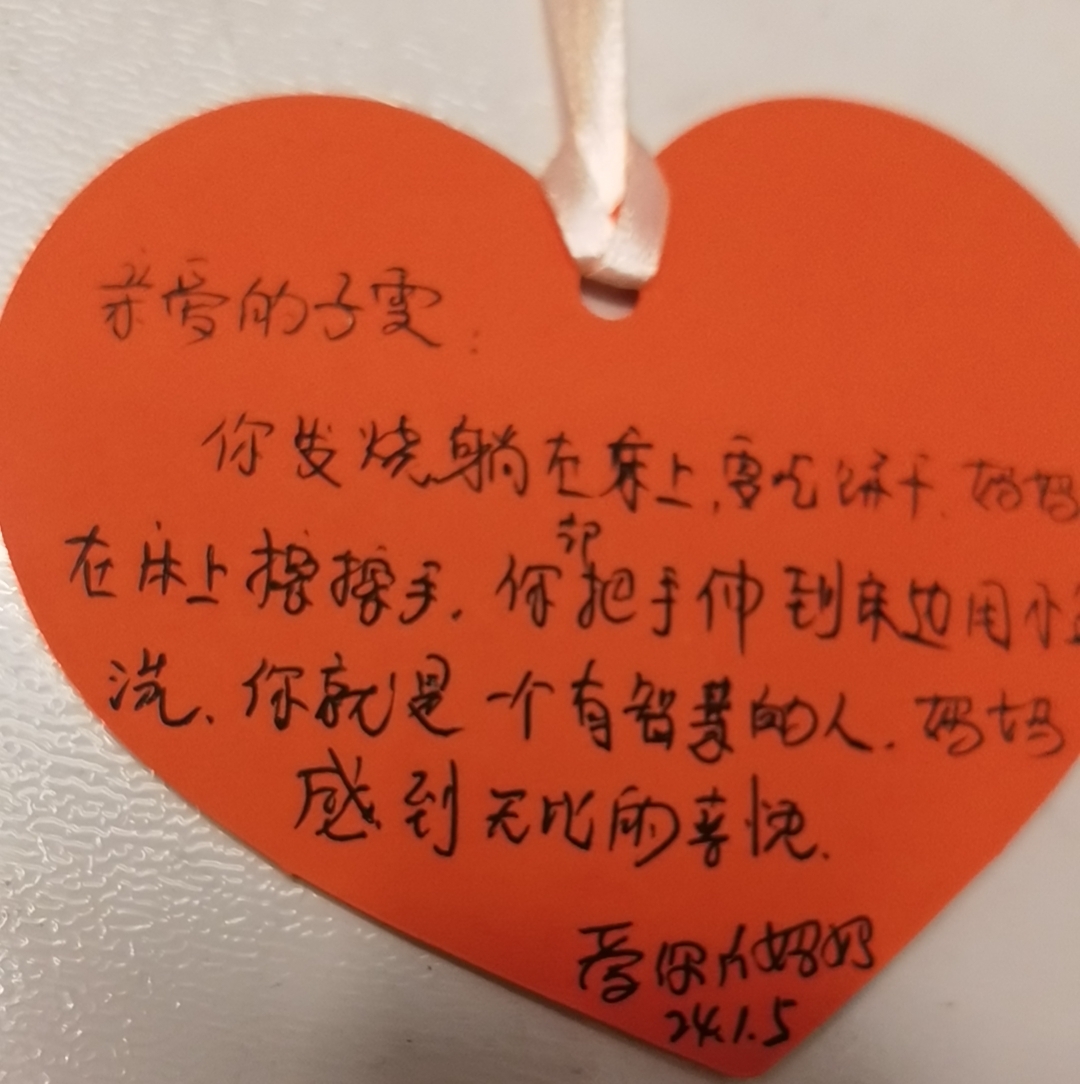 亲爱的子雯:
你发烧躺在床上,要吃饼干.妈妈
在床上擦擦手.你却把手伸到床边用小盆
洗.你就是一个有智慧的人.妈妈
感到无比的喜悦.
爱你的妈妈
24.1.5